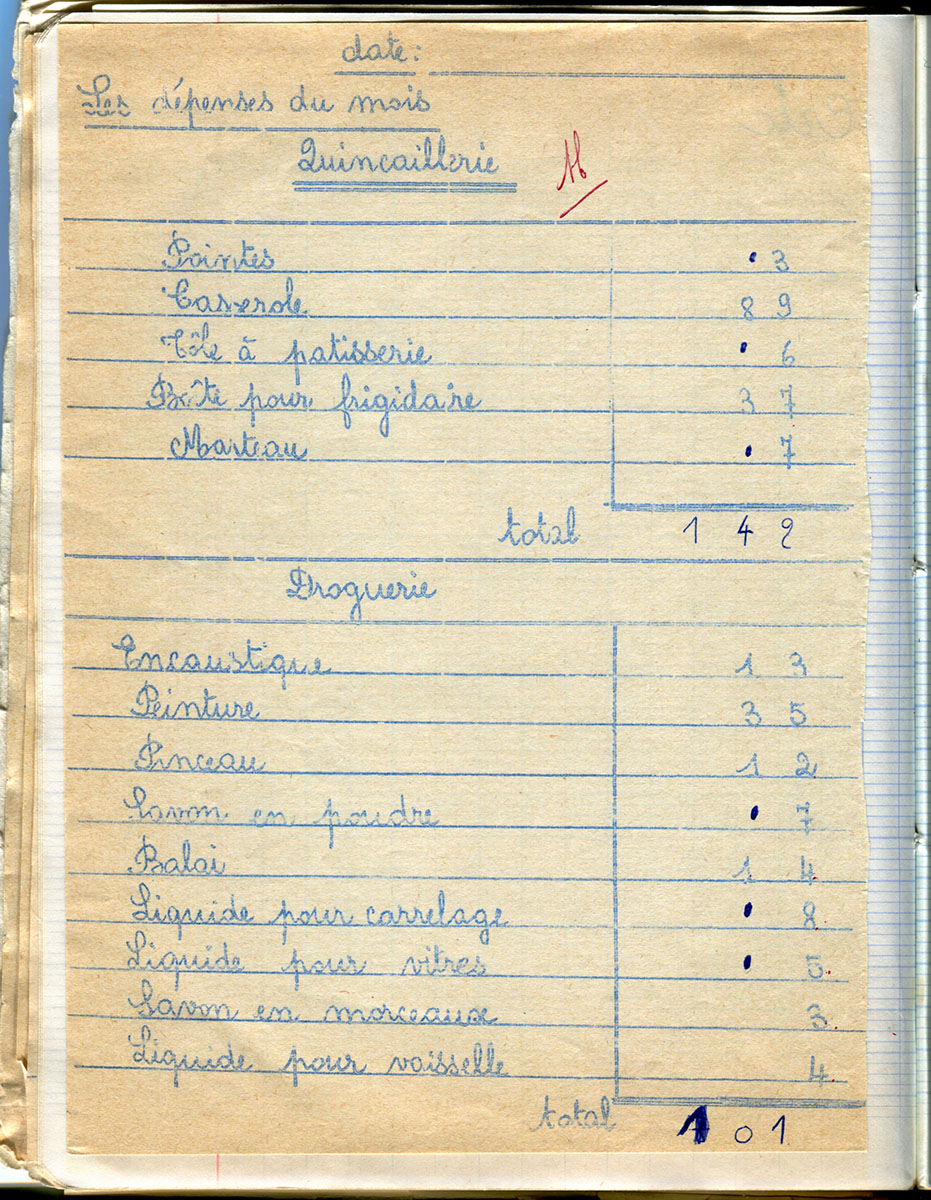 date:
Les dépenses du mois
Quincaillerie
Pointes . 3
Casserole 8 9
Tôle à patisserie . 6
Boîte pour frigidaire 3 7
Marteau . 7
total 1 4 2
Droguerie
Encaustique 1 3
Peinture 3 5
Pinceau 1 2
Savon en poudre . 7
Balai 1 4
Liquide pour carrelage . 8
Liquide pour vitres . 5
Savon en morceaux 3
Liquide pour vaisselle 4
total 1 0 1